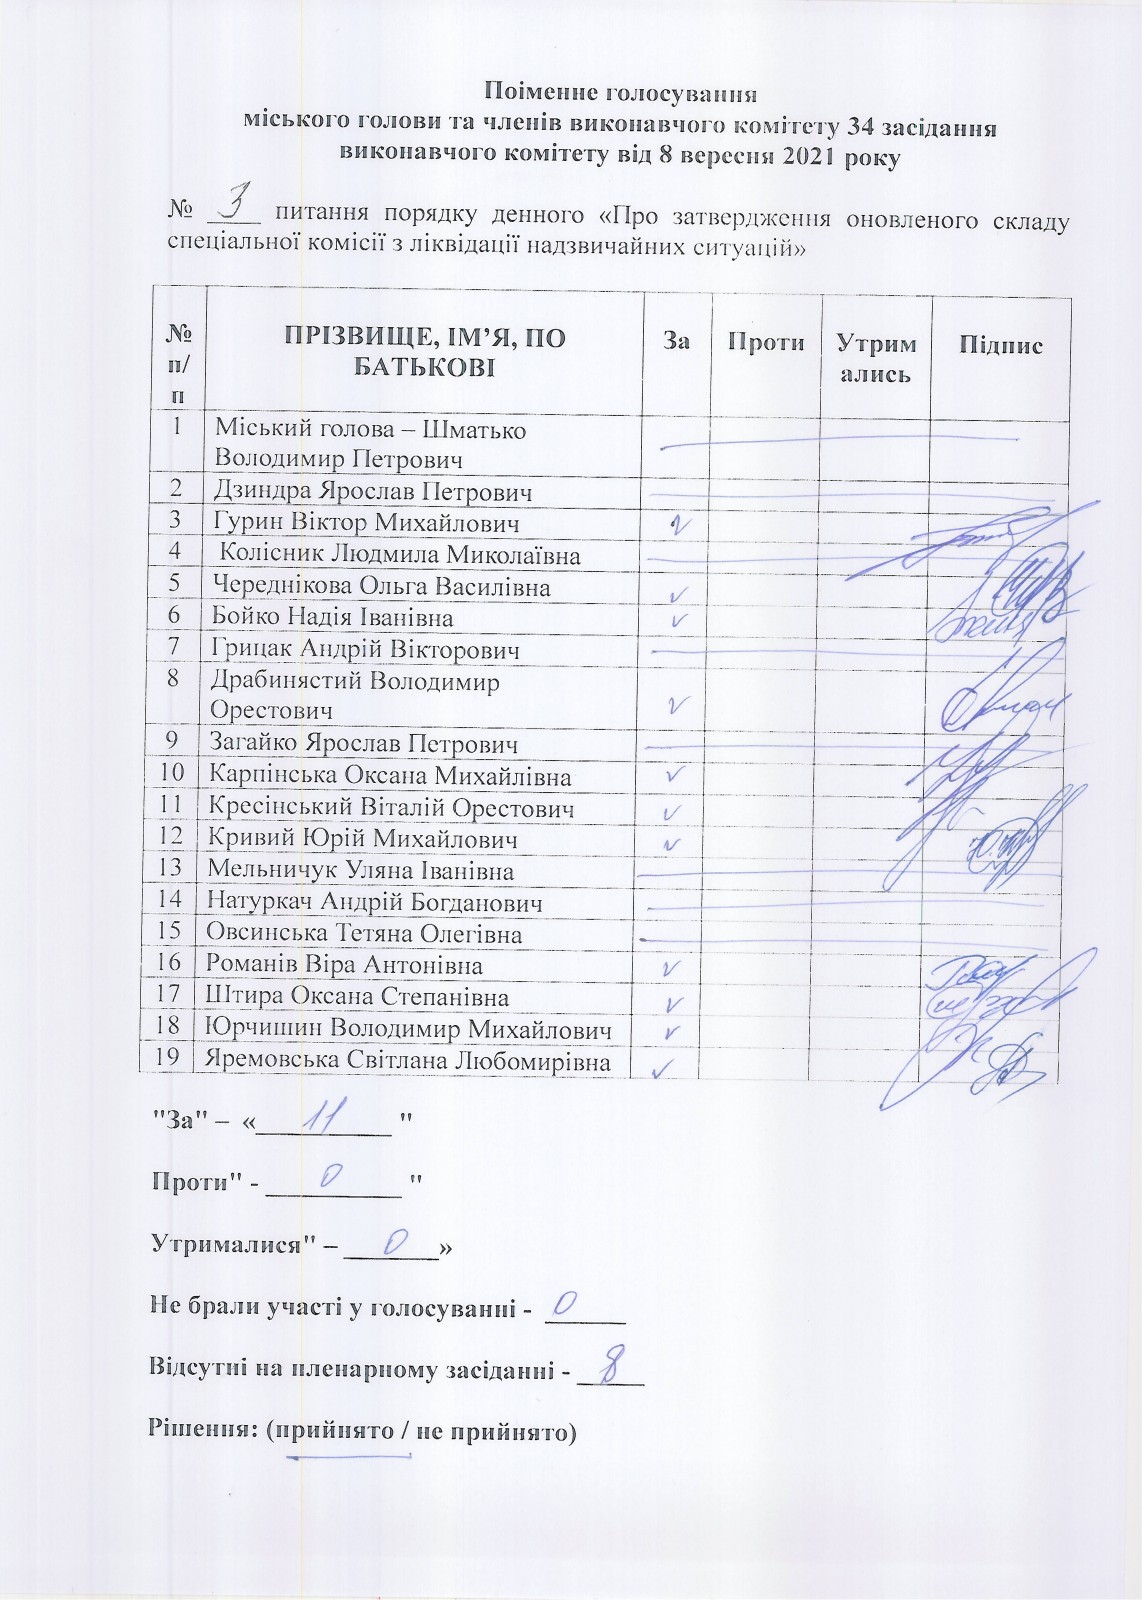 Поіменне голосування
міського голови та членів виконавчого комітету 34 засідання
виконавчого комітету від 8 вересня 2021 року
№ 3 питання порядку денного «Про затвердження оновленого складу
спеціальної комісії з ліквідації надзвичайних ситуацій»
№ п/п ПРІЗВИЩЕ, ІМ’Я, ПО БАТЬКОВІ За Проти Утрим ались Підпис
1 Міський голова – Шматько
Володимир Петрович
2 Дзиндра Ярослав Петрович
3 Гурин Віктор Михайлович
4 Колісник Людмила Миколаївна
5 Череднікова Ольга Василівна
6 Бойко Надія Іванівна
7 Грицак Андрій Вікторович
8 Драбинястий Володимир
Орестович
9 Загайко Ярослав Петрович
10 Карпінська Оксана Михайлівна
11 Кресінський Віталій Орестович
12 Кривий Юрій Михайлович
13 Мельничук Уляна Іванівна
14 Натуркач Андрій Богданович
15 Овсинська Тетяна Олегівна
16 Романів Віра Антонівна
17 Штира Оксана Степанівна
18 Юрчишин Володимир Михайлович
19 Яремовська Світлана Любомирівна
"За" – « 11 "
Проти" - 0 "
Утрималися" – 0 »
Не брали участі у голосуванні - 0
Відсутні на пленарному засіданні - 8
Рішення: (прийнято / не прийнято)